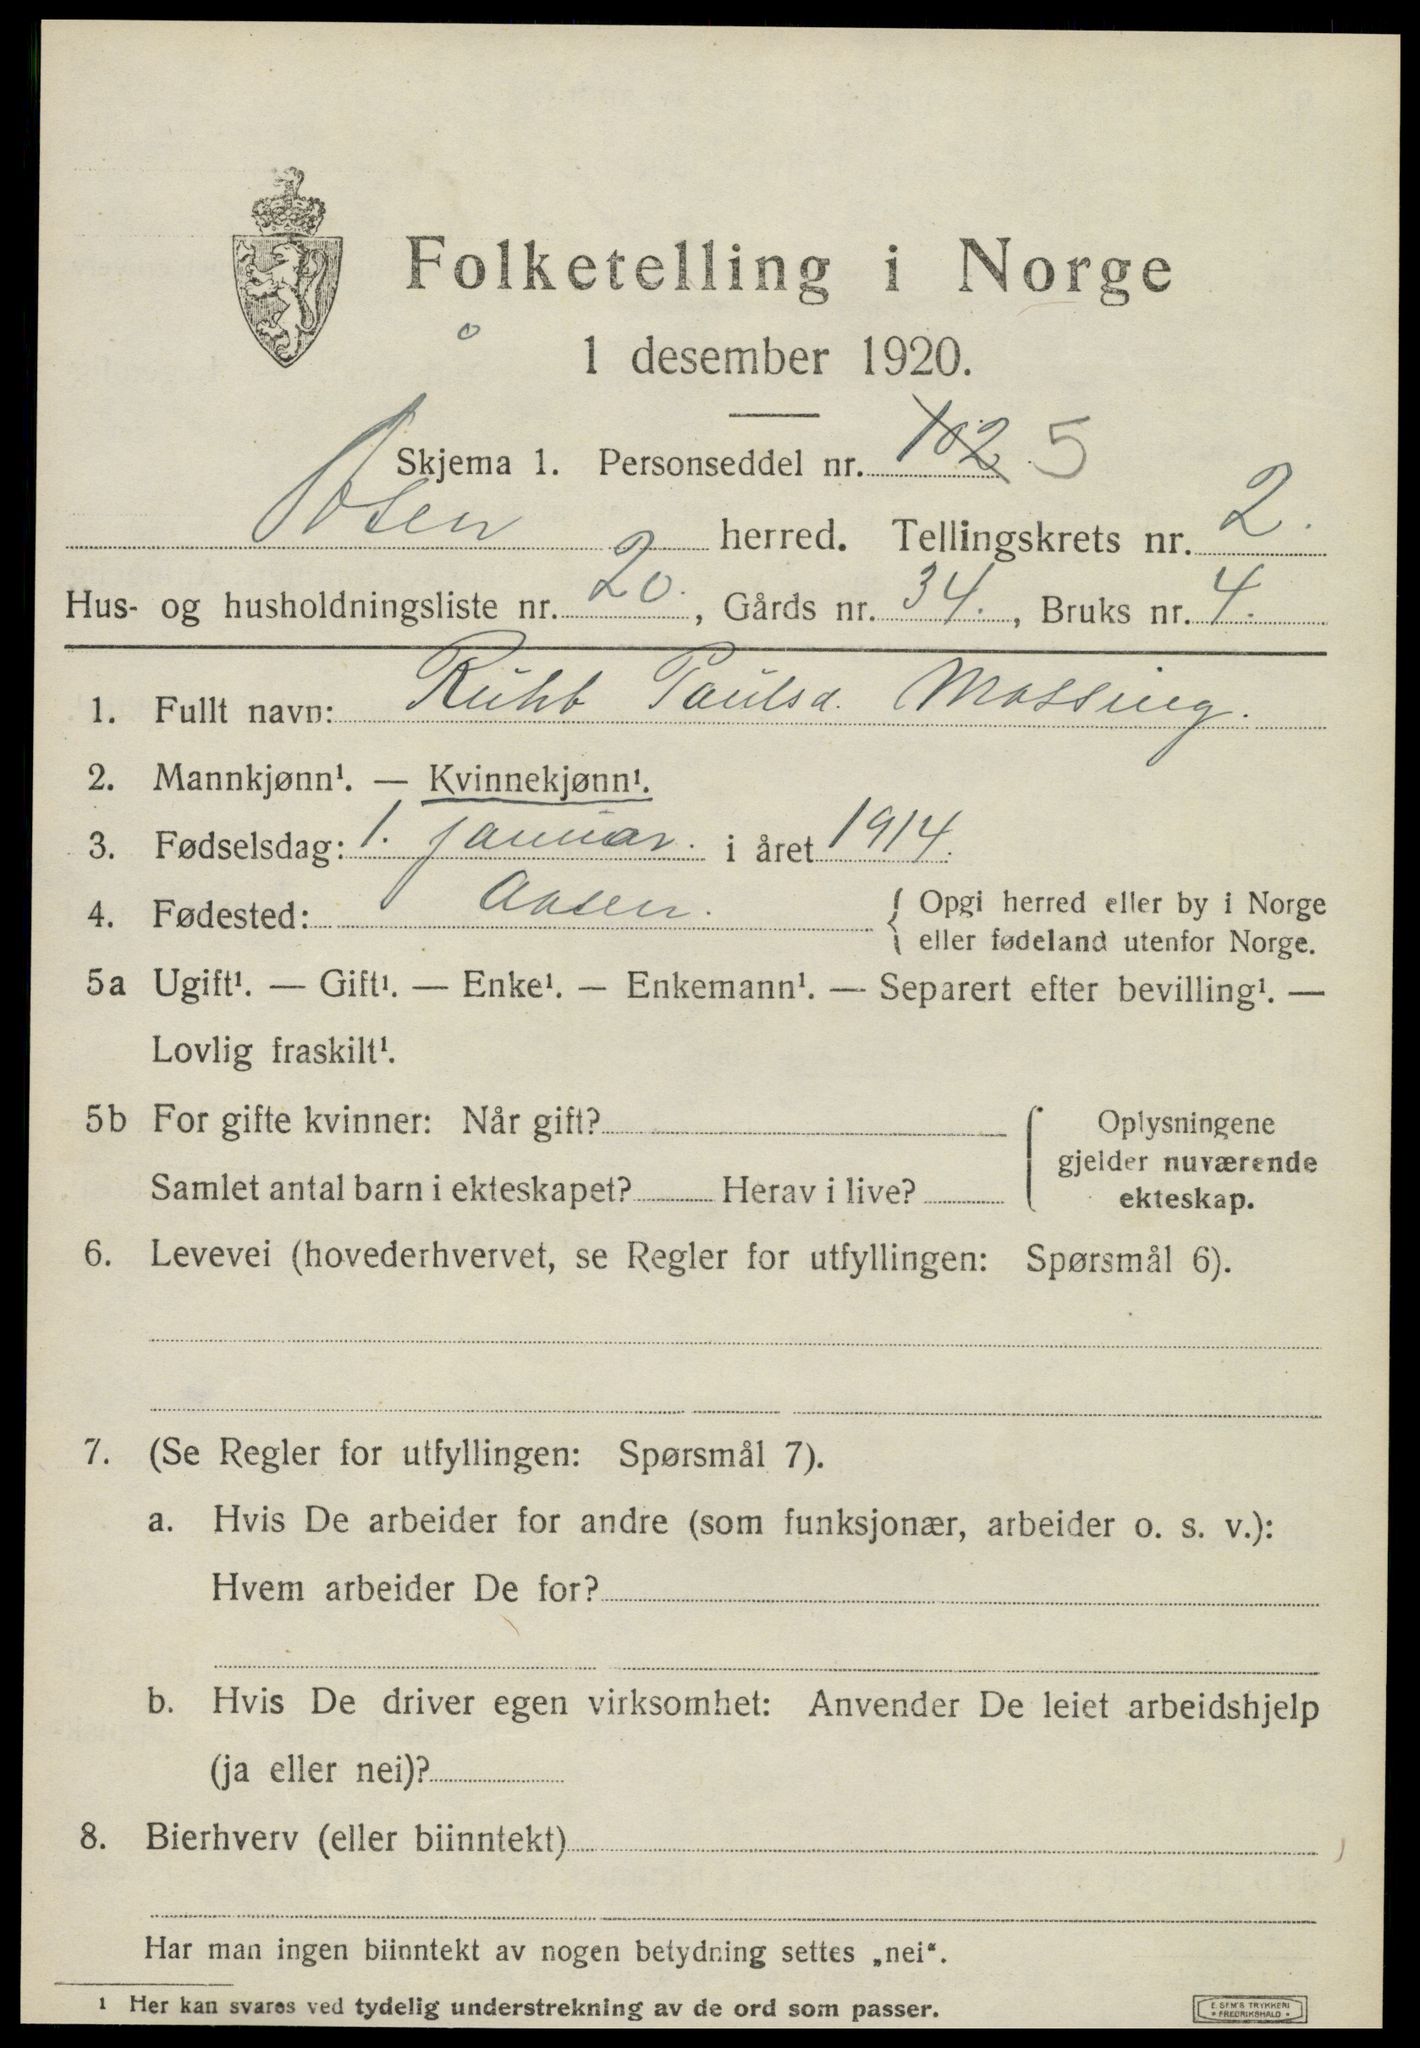 Folketelling i Norge
1 desember 1920.
Skjema 1. Personseddel nr. 102 5
Åsen herred. Tellingskrets nr. 2.
Hus- og husholdningsliste nr. 20., Gårds nr. 34., Bruks nr. 4.
1. Fullt navn: Paulsd. Mossing.
2. Mannkjønn¹. — Kvinnekjønn¹.
3. Fødselsdag: 1. januar. i året 1914.
4. Fødested: Aasen. { Opgi herred eller by i Norge
eller fødeland utenfor Norge.
5a Ugift¹. — Gift¹. — Enke¹. — Enkemann¹. — Separert efter bevilling¹. —
Lovlig fraskilt¹.
5b For gifte kvinner: Når gift? { Oplysningene
gjelder nuværende
Samlet antal barn i ekteskapet? Herav i live?
ekteskap.
6. Levevei (hovederhvervet, se Regler for utfyllingen: Spørsmål 6).
7. (Se Regler for utfyllingen: Spørsmål 7).
a. Hvis De arbeider for andre (som funksjonær, arbeider o. s. v.):
Hvem arbeider De for?
b. Hvis De driver egen virksomhet: Anvender De leiet arbeidshjelp
(ja eller nei)?
8. Bierhverv (eller biinntekt)
Har man ingen biinntekt av nogen betydning settes „nei“.
1 Her kan svares ved tydelig understrekning av de ord som passer.
E. SEM'S TRYKKERI
• FREDRIKSHALD •